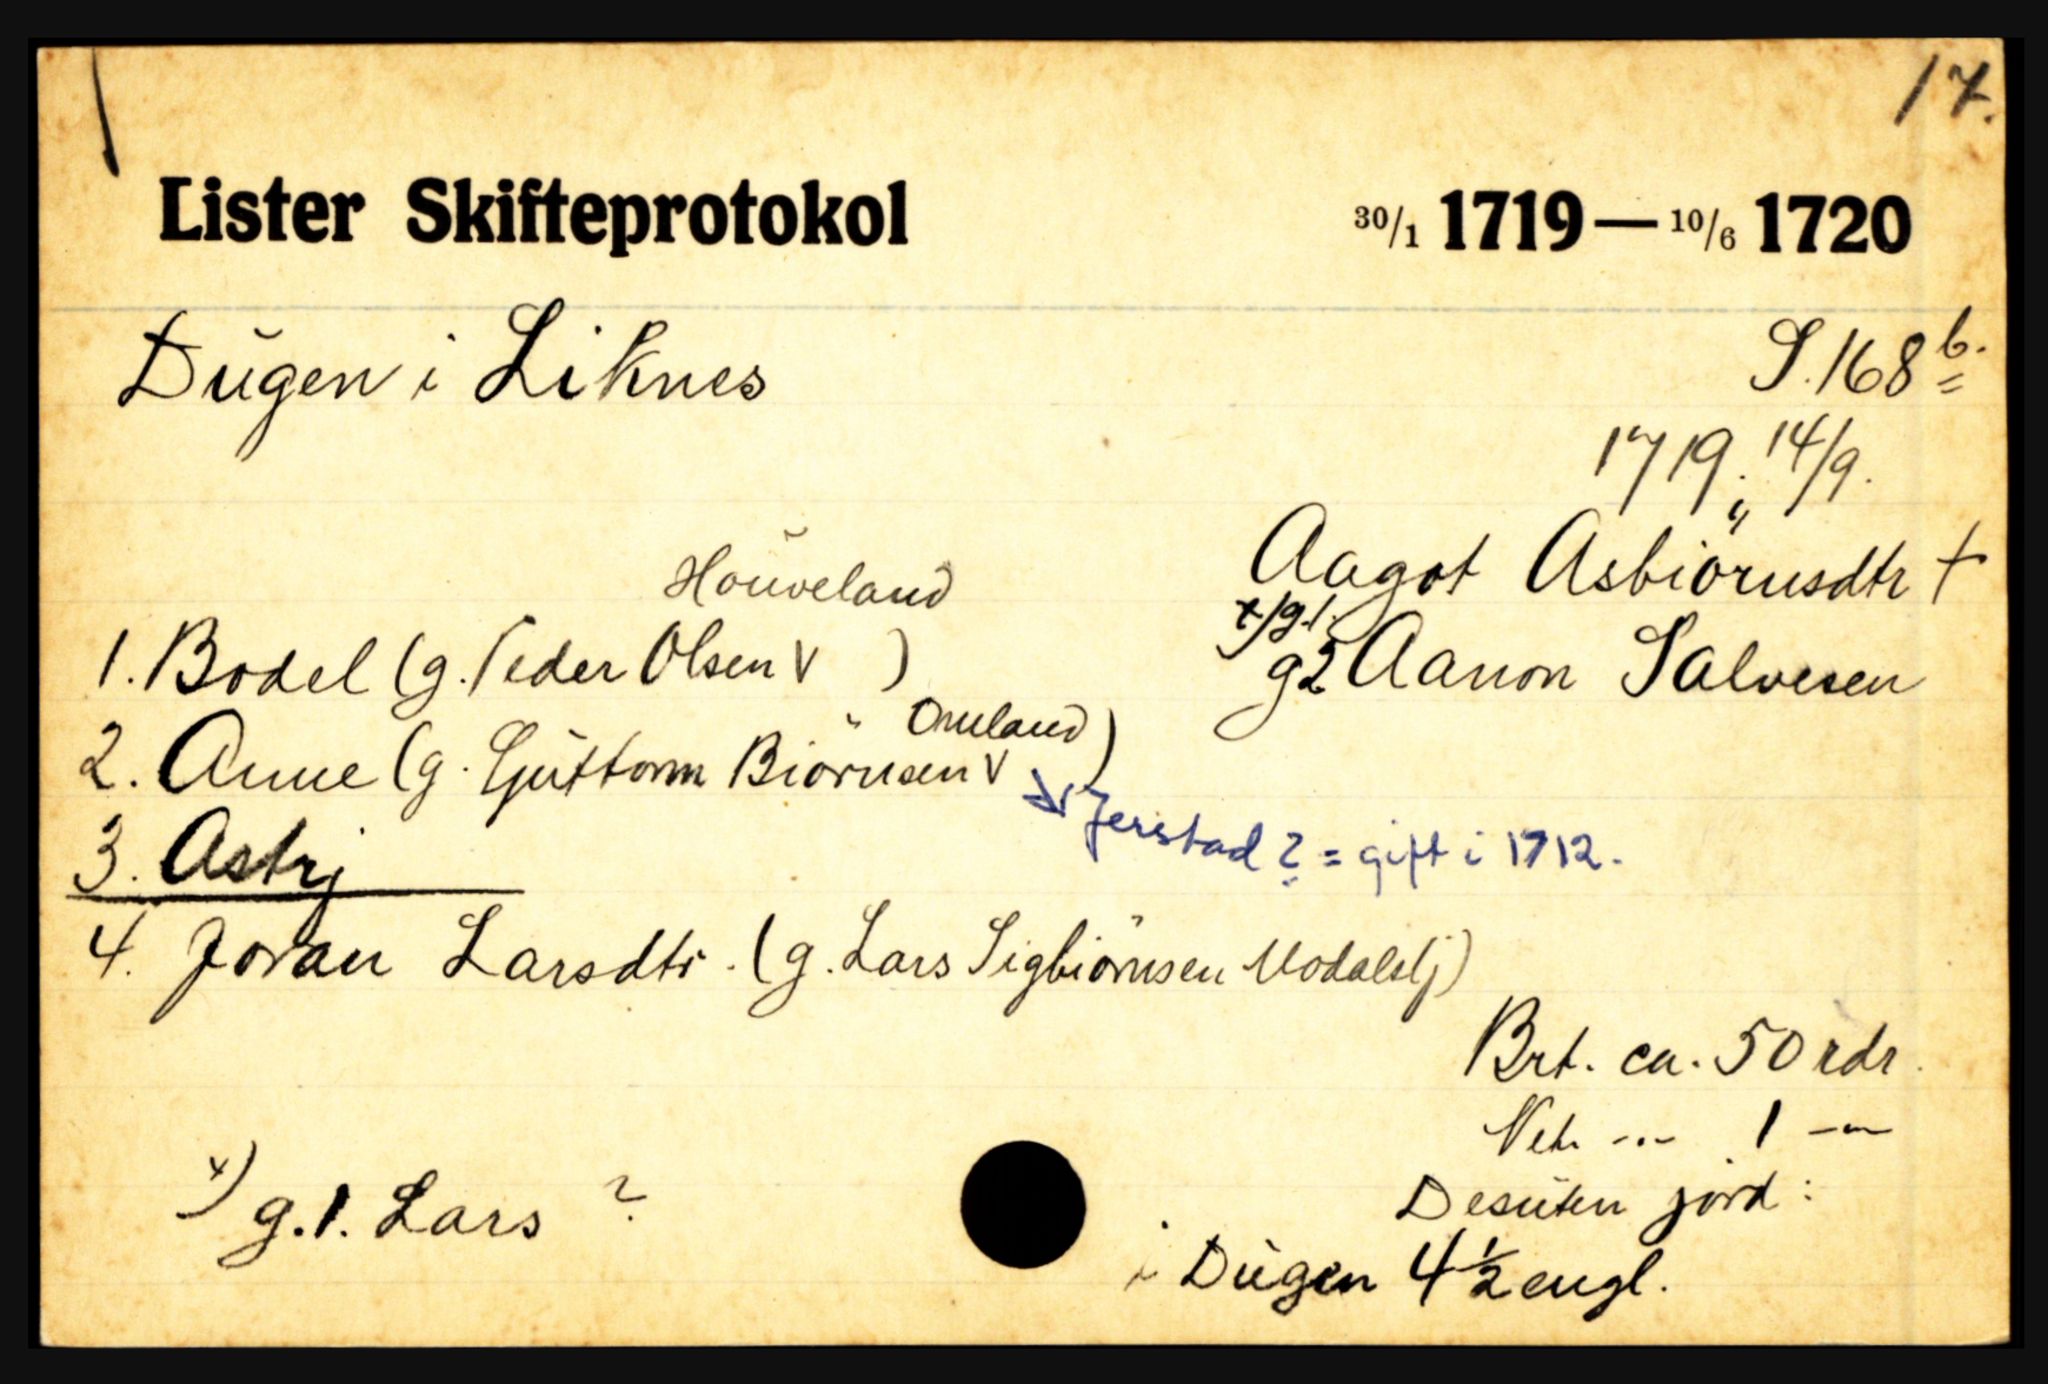 17.
Lister Skifteprotokol 30/1 1719 — 10/6 1720
Dŭgen i Liknes
S. 168 b.
1719, 14/9.
Aagot Asbiörnsdtr †
x/g.1.
g2 Aanon Salvesen
Hoŭveland
1. Bodel (g. Peder Olsen V )
Omland
2. Anne (g. Gŭttorm Biörnsen V )
Jerstad ? = gift i 1712.
3. Astrj
4. Joran Larsdtr. (g. Lars Sigbiörnsen Modalslj)
Brt. ca. 50 rdr.
Net. -„- 1 -„-
Desŭten jord:
i Dŭgen 4½ engl.
x) g.1. Lars ?